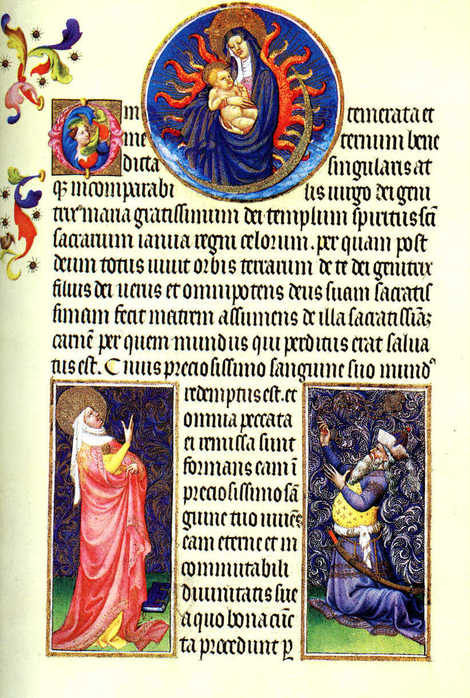 O in temerata et
in e ternum bene
dicta singularis at
qȝ incomparabi lis uirgo dei geni
trix maria gratissimum dei templum spiritus sc̄i
sacrarium ianua regni celorum. per quam post
deum totus uiuit orbis terrarum de te dei genitrix
filius dei uerus et omnipotens deus suam sacratis
simam fecit matrem assumens de illa sacratissimā
carnē per quem mundus qui perditus erat salua
tus est. Cuius preciosissimo sanguine suo mundꝰ
redemptus est. et
omnia peccata
ei remissa sunt
formans eam ī
preciosissimo sā
guine tuo
eam eterne et in
commutabili
diuinitatis sue
a quo bona cūc
ta procedunt ꝑ